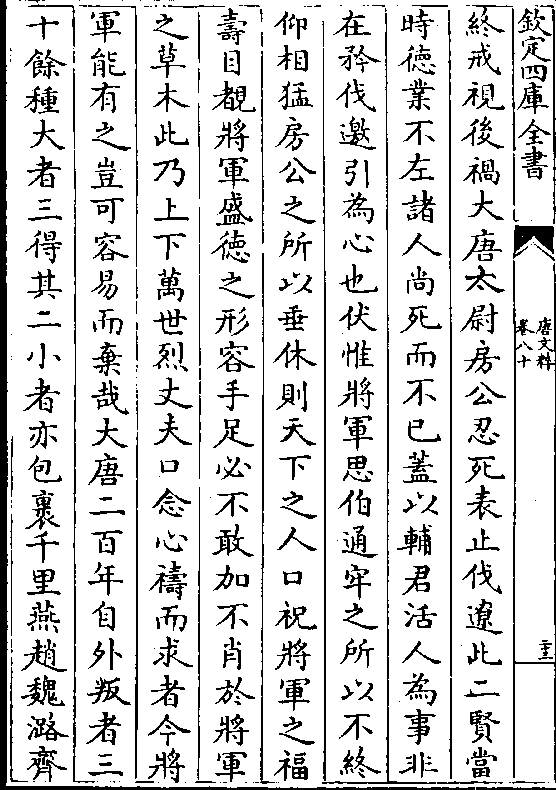 欽定四庫全書
唐文粹
卷八十
二十三
終戒視後禍大唐太尉房公忍死表止伐遼此二賢當
時德業不左諸人尚死而不已蓋以輔君活人為事非
在矜伐邀引為心也伏惟將軍思伯通牢之所以不終
仰相猛房公之所以垂休則天下之人口祝將軍之福
壽目覩將軍盛德之形容手足必不敢加不肖於將軍
之草木此乃上下萬世烈丈夫口念心禱而求者今將
軍能有之豈可容易而棄哉大唐二百年自外叛者三
十餘種大者三得其二小者亦包裹千里燕趙魏潞齊